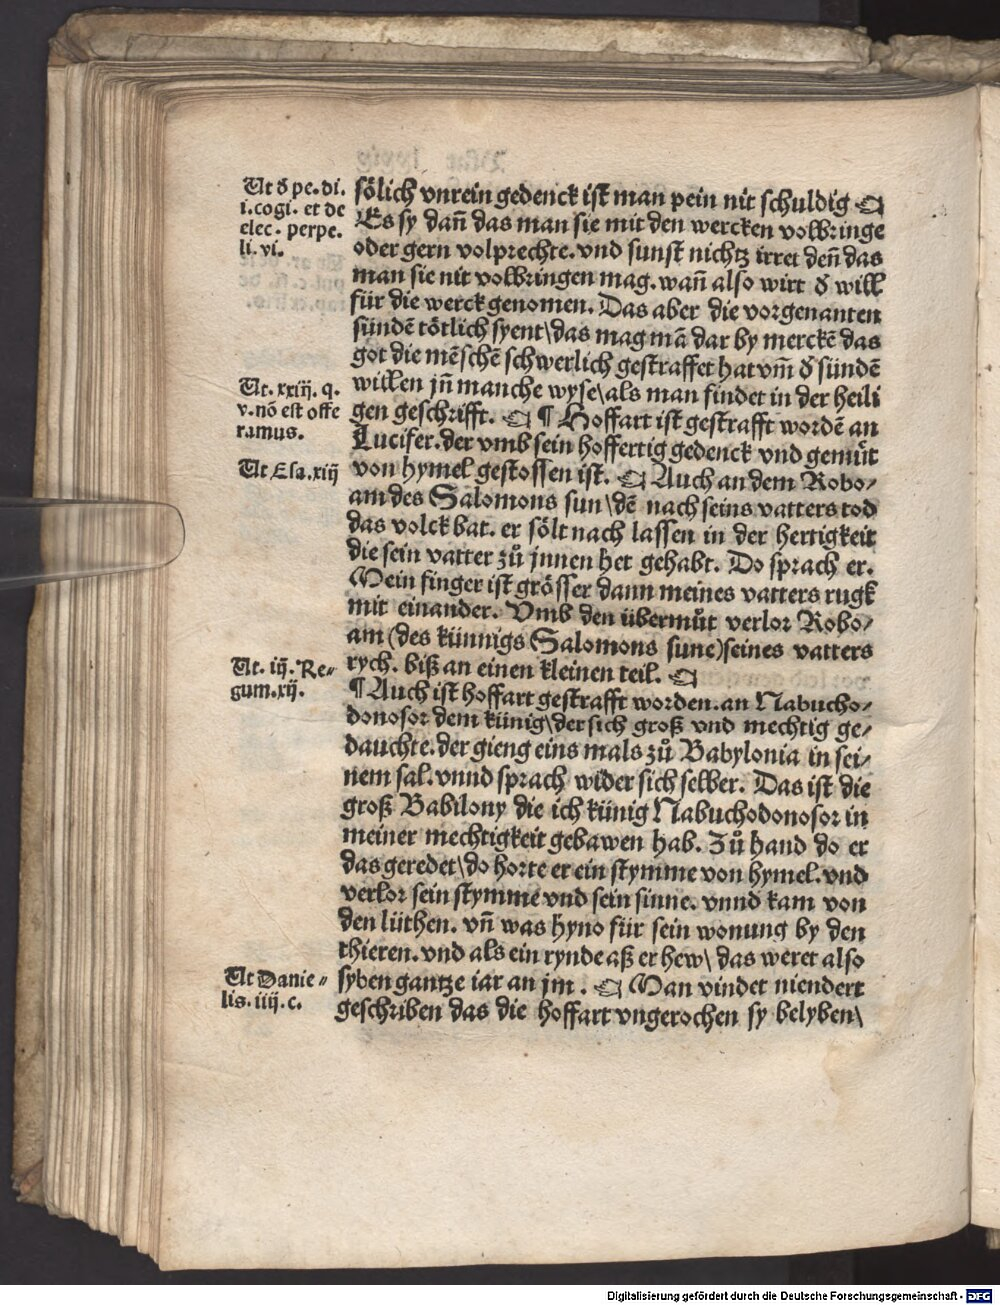 Ut ð pe. di.
i. cogi. et de
elec. perpe.
li. vi.
sölich vnrein gedenck ist man pein nit schuldig ☜
Es sy dañ das man sie mit den wercken volbringe
oder gern volprechte. vnd sunst nichtz irret deñ das
man sie nit volbringen mag. wañ also wirt ð will
für die werck genomen. Das aber die vorgenanten
sündē tötlich syent\ das mag mā dar by merckē das
got die mēschē schwerlich gestraffet hat vm̄ ð sündē
Ut. xxiij. q.
v. nō est offe
ramus.
willen jn manche wyse\ als man findet in der heili
gen geschrifft. ☜ ¶ Hoffart ist gestrafft wordē an
Lucifer. der vmb sein hoffertig gedenck vnd gemuͤt
Ut Esa. xiij
von hymel gestossen ist. ☜ Auch an dem Robo⸗
am des Salomons sun\ dē nach seins vatters tod
das volck bat. er sölt nach lassen in der hertigkeit
die sein vatter zů jnnen het gehabt. Do sprach er.
Mein finger ist grösser dann meines vatters rugk
mit einander. Vmb den übermuͤt verlor Robo⸗
am (des künnigs Salomons sune) seines vatters
Ut. iij. Re⸗
gum. xij.
rych. biß an einen kleinen teil. ☜
¶ Auch ist hoffart gestrafft worden. an Nabucho⸗
donosor dem künig\ der sich groß vnd mechtig ge⸗
dauchte. der gieng eins mals zů Babylonia in sei⸗
nem sal. vnnd sprach wider sich selber. Das ist die
groß Babilony die ich künig Nabuchodonosor in
meiner mechtigkeit gebawen hab. Zů hand do er
das geredet\ do horte er ein stymme von hymel. vnd
verlor sein stymme vnd sein sinne. vnnd kam von
den lüthen. vñ was hyno für sein wonung by den
thieren. vnd als ein rynde aß er hew\ das weret also
Ut Danie⸗
lis. iiij. c.
syben gantze iar an jm. ☜ Man vindet niendert
geschriben das die hoffart vngerochen sy belyben\
Digitalisierung gefördert durch die Deutsche Forschungsgemeinschaft - DFG